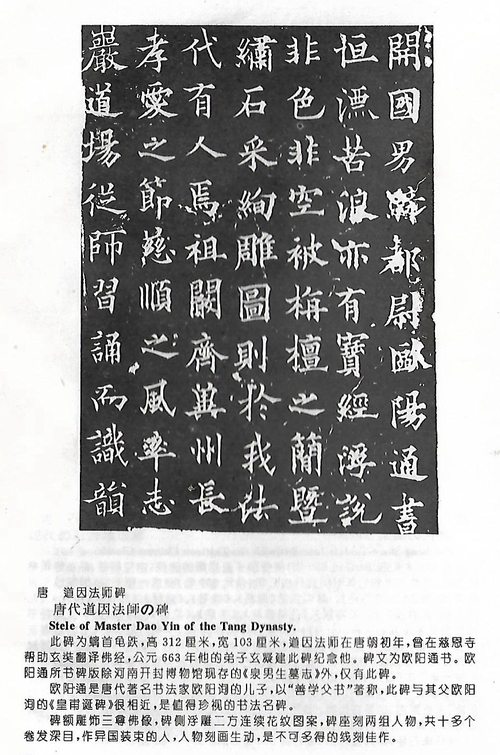 開國男騎都尉歐陽通書
恒漂苦浪亦有寶經浮說
非色非空被栴檀之簡暨
繡石采絢雕圖則於我法
代有人焉祖闕齊冀州長
孝愛之節慈順之風率志
嚴道場從師習誦而識韻
唐　道因法师碑
唐代道因法師の碑
Stele of Master Dao Yin of the Tang Dynasty.
此碑为螭首龟趺，高 312 厘米，宽 103 厘米，道因法师在唐朝初年，曾在慈恩寺
帮助玄奘翻译佛经，公元 663 年他的弟子玄凝建此碑纪念他。碑文为欧阳通书。欧
阳通所书碑版除河南开封博物馆现存的《泉男生墓志》外，仅有此碑。
欧阳通是唐代著名书法家欧阳洵的儿子，以“善学父书”著称，此碑与其父欧阳
洵的《皇甫诞碑》很相近，是值得珍视的书法名碑。
碑额雕饰三尊佛像，碑侧浮雕二方连续花纹图案，碑座刻两组人物，共十多个
卷发深目，作异国装束的人，人物刻画生动，是不可多得的线刻佳作。